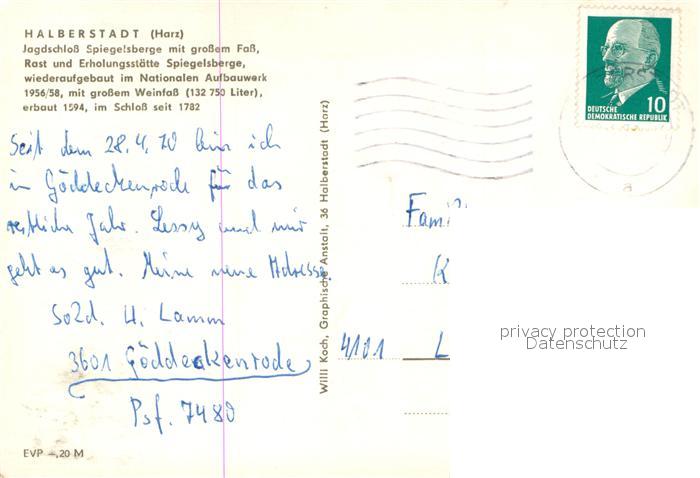 HALBERSTADT (Harz)
Jagdschloß Spiegelsberge mit großem Faß,
Rast und Erholungsstätte Spiegelsberge,
wiederaufgebaut im Nationalen Aufbauwerk
1956/58, mit großem Weinfaß (132 750 Liter),
erbaut 1594, im Schloß seit 1782
Seit dem 28.4.70 bin ich
in Göddeckenrode für das
restliche Jahr. Lessy und mir
geht es gut. Meine neue Adresse.
Sold. H. Lamm
3601 Göddeckenrode
Psf. 7480
EVP –,20 M
Willi Koch, Graphische Anstalt, 36 Halberstadt (Harz)
DEUTSCHE
DEMOKRATISCHE REPUBLIK
10
Fami
K
4101 L
privacy protection
Datenschutz